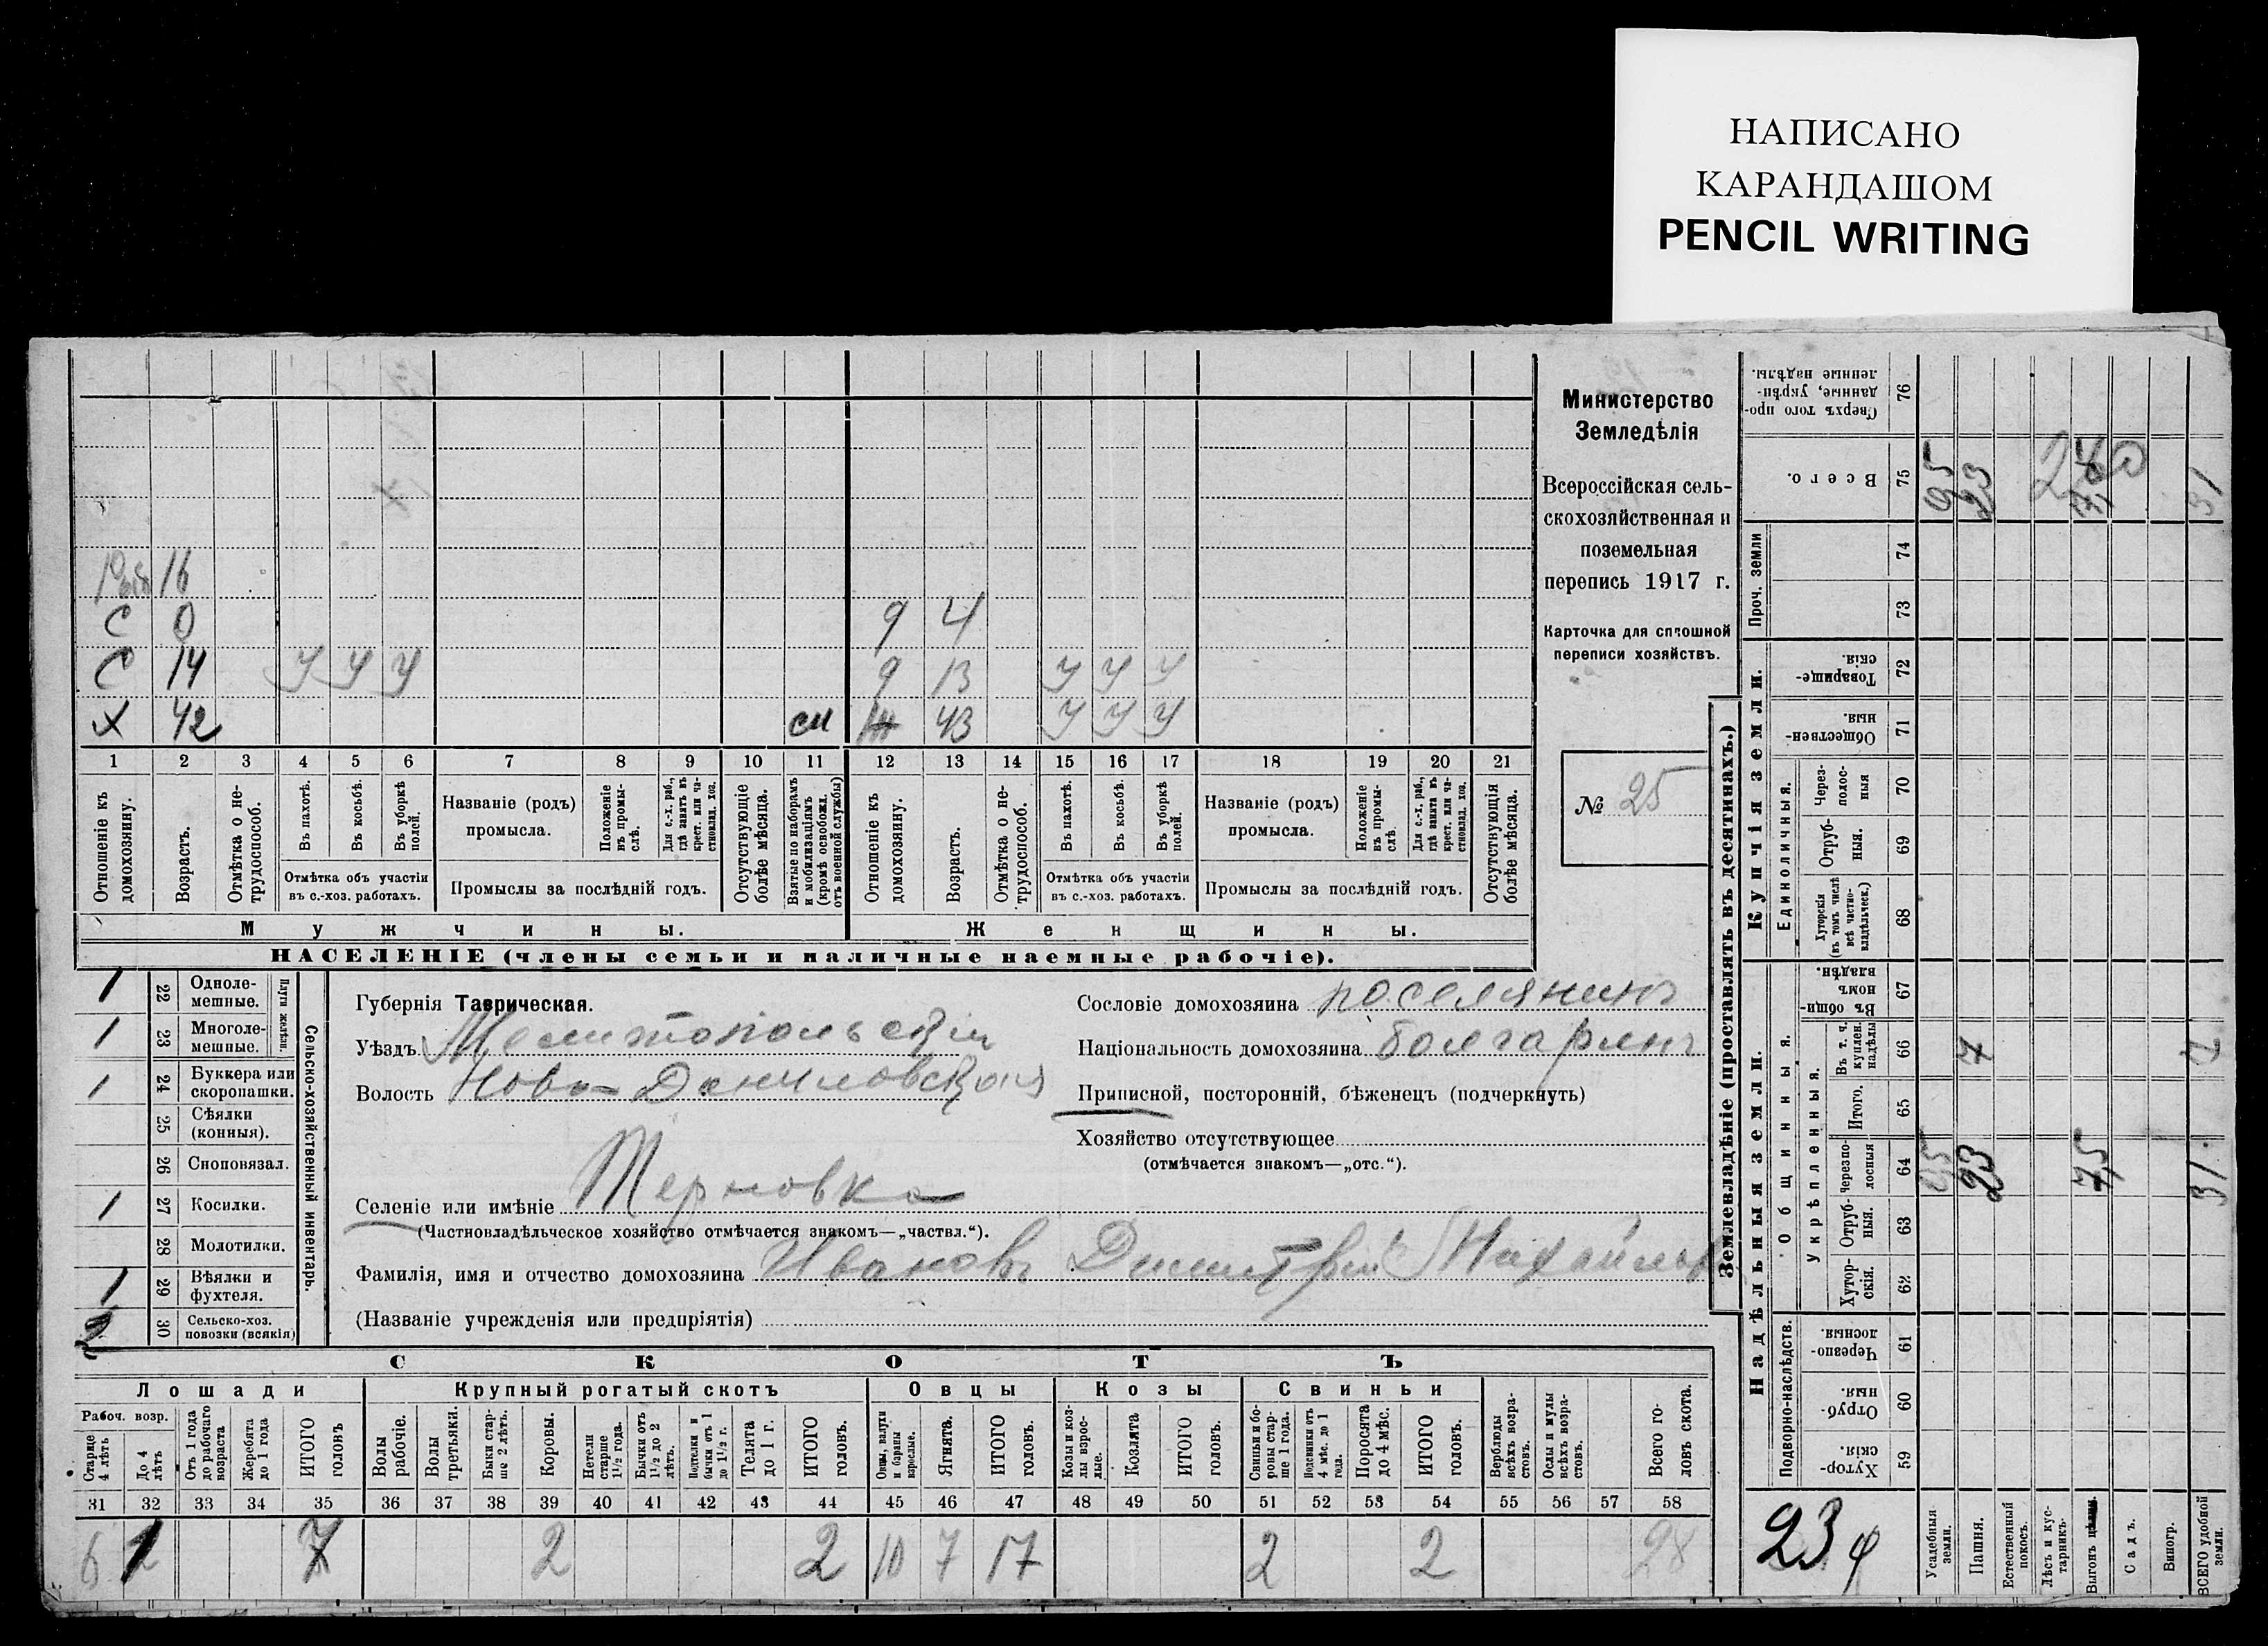 НАПИСАНО
КАРАНДАШОМ
PENCIL WRITING
16
С 0
д 4
С 14 У У У
д 13 У У У
Х 42
Ж 43 У У У
1 2 3 4 5 6 7 8 9 10 11 12 13 14 15 16 17 18 19 20 21
Отношеніе къ домохозяину.
Возрастъ.
Отмѣтка о нетрудоспособ.
Въ пахотѣ.
Въ косьбѣ.
Въ уборкѣ полей.
Отмѣтка объ участіи
въ с.-хоз. работахъ.
Названіе (родъ)
промысла.
Положеніе въ промыслѣ.
Для с.-х. раб., гдѣ занятъ въ крест. или частновлад. хоз.
Промыслы за послѣдній годъ.
Отсутствующіе болѣе мѣсяца.
Взятые по наборамъ и мобилизаціямъ (кромѣ освобожд. отъ военной службы)
Отношеніе къ домохозяину.
Возрастъ.
Отмѣтка о нетрудоспособ.
Въ пахотѣ.
Въ косьбѣ.
Въ уборкѣ полей.
Отмѣтка объ участіи
въ с.-хоз. работахъ.
Названіе (родъ)
промысла.
Положеніе въ промыслѣ.
Для с.-х. раб., гдѣ занята въ крест. или частновлад. хоз.
Промыслы за послѣдній годъ.
Отсутствующія болѣе мѣсяца.
Мужчины.
Женщины.
НАСЕЛЕНІЕ (члены семьи и наличные наемные рабочіе).
Министерство
Земледѣлія
Всероссійская сель-
скохозяйственная и
поземельная
перепись 1917 г.
Карточка для сплошной
переписи хозяйствъ.
№ 25
1 22 Одноле-
мешные.
1 23 Многоле-
мешные.
Плуги желѣзн.
1 24 Буккера или
скоропашки.
25 Сѣялки
(конныя).
26 Сноповязал.
1 27 Косилки.
28 Молотилки.
1 29 Вѣялки и
фухтеля.
2 30 Сельско-хоз.
повозки (всякія)
Сельско-хозяйственный инвентарь.
Губернія Таврическая.
Уѣздъ Мелитопольскій
Волость Ново-Даниловская
Селеніе или имѣніе Терновка
(Частновладѣльческое хозяйство отмѣчается знакомъ—„частвл.“).
Фамилія, имя и отчество домохозяина Ивановъ Димитрій Михайлов
(Названіе учрежденія или предпріятія)
Сословіе домохозяина поселянинъ
Національность домохозяина болгаринъ
Приписной, посторонній, бѣженецъ (подчеркнуть)
Хозяйство отсутствующее
(отмѣчается знакомъ—„отс.“).
СКОТЪ
Лошади
Крупный рогатый скотъ
Овцы
Козы
Свиньи
Рабоч. возр.
Старше 4 лѣтъ
До 4 лѣтъ
Отъ 1 года до рабочаго возраста
Жеребята до 1 года
ИТОГО головъ
Волы рабочіе.
Волы третьяки.
Быки старше 2 лѣтъ.
Коровы.
Нетели старше 1½ года.
Бычки отъ 1½ до 2 лѣтъ.
Подтелки и бычки отъ 1 до 1½ г.
Телята до 1 г.
ИТОГО головъ.
Овцы, валухи и бараны взрослые.
Ягнята.
ИТОГО головъ.
Козы и козлы взрослые.
Козлята
ИТОГО головъ.
Свиньи и боровы старше 1 года.
Подсвинки отъ 4 мѣс. до 1 года.
Поросята до 4 мѣс.
ИТОГО головъ.
Верблюды всѣхъ возрастовъ.
Ослы и мулы всѣхъ возрастовъ.
Всего головъ скота.
31 32 33 34 35 36 37 38 39 40 41 42 43 44 45 46 47 48 49 50 51 52 53 54 55 56 57 58
6 1 7 2 2 10 7 17 2 2 28
Землевладѣніе (проставлять въ десятинахъ.)
Купчія земли.
Надѣльныя земли.
Проч. земли
Единоличныя.
Общинныя.
Укрѣпленныя.
Подворно-наслѣдств.
Сверхъ того проданные, укрѣпленные надѣлы. 76
Всего. 75
23
31
74
73
Товарищескія. 72
Общественныя 71
Чрезполосныя 70
Отрубныя. 69
Хуторскія (въ томъ числѣ всѣ частновладѣльческ.) 68
Въ общинномъ владѣн. 67
Въ т. ч. куплен. надѣлы 66
7
7
Итого. 65
Черезполосныя 64
23
7,5
31
Отрубныя. 63
Хуторскія. 62
Черезполосныя. 61
Отрубныя. 60
Хуторскія. 59
23
Усадебныя земли.
Пашня.
Естественный покосъ.
Лѣсъ и кустарникъ.
Выгонъ
Садъ.
Виногр.
ВСЕГО удобной земли.